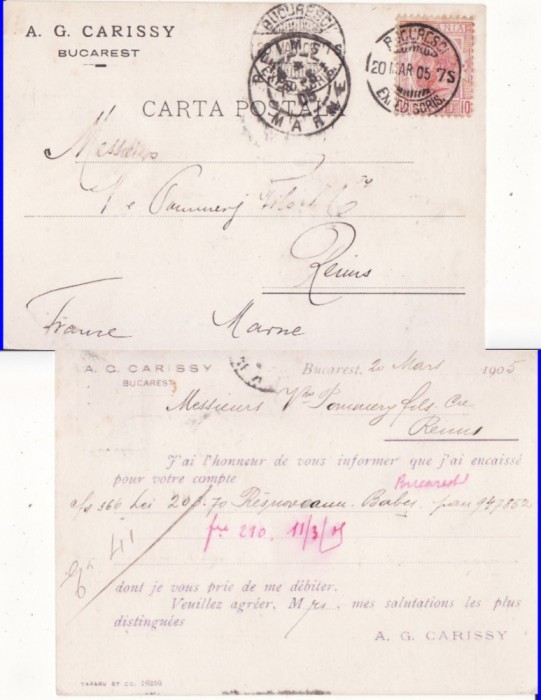 A. G. CARISSY
BUCAREST
BUCURESCI
REIMS
MARNE
BUCURESCI
20 MAR 05 7S
EX. CU SORIS.
10
CARTA POSTALA
Messieurs
Vve Pommery Fils & Cie
Reims
France Marne
A. G. CARISSY
BUCAREST
Bucarest, 20 Mars 1905
Messieurs Vve Pommery fils & Cie
Reims
J'ai l'honneur de vous informer que j'ai encaissé
pour votre compte
Bucarest
366 Lei 203.70
frs 210. 11/3/05
41
dont je vous prie de me débiter.
Veuillez agréer, M rs, mes salutations les plus
distinguées
A. G. CARISSY